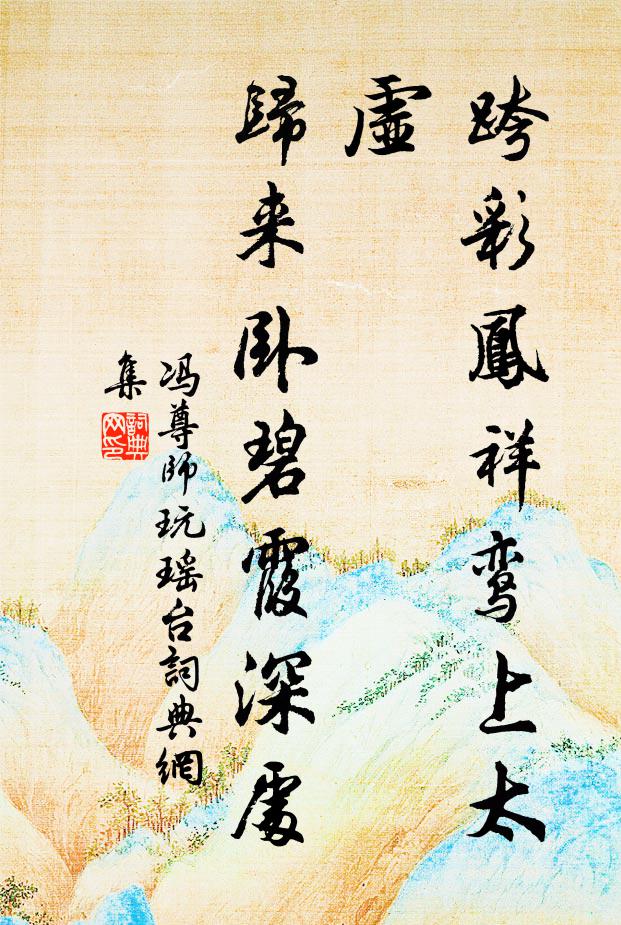 跨彩鳳祥鸾上太
虛
歸来卧碧霞深處
冯尊師玩瑶台詞典網
集
詞典
网印